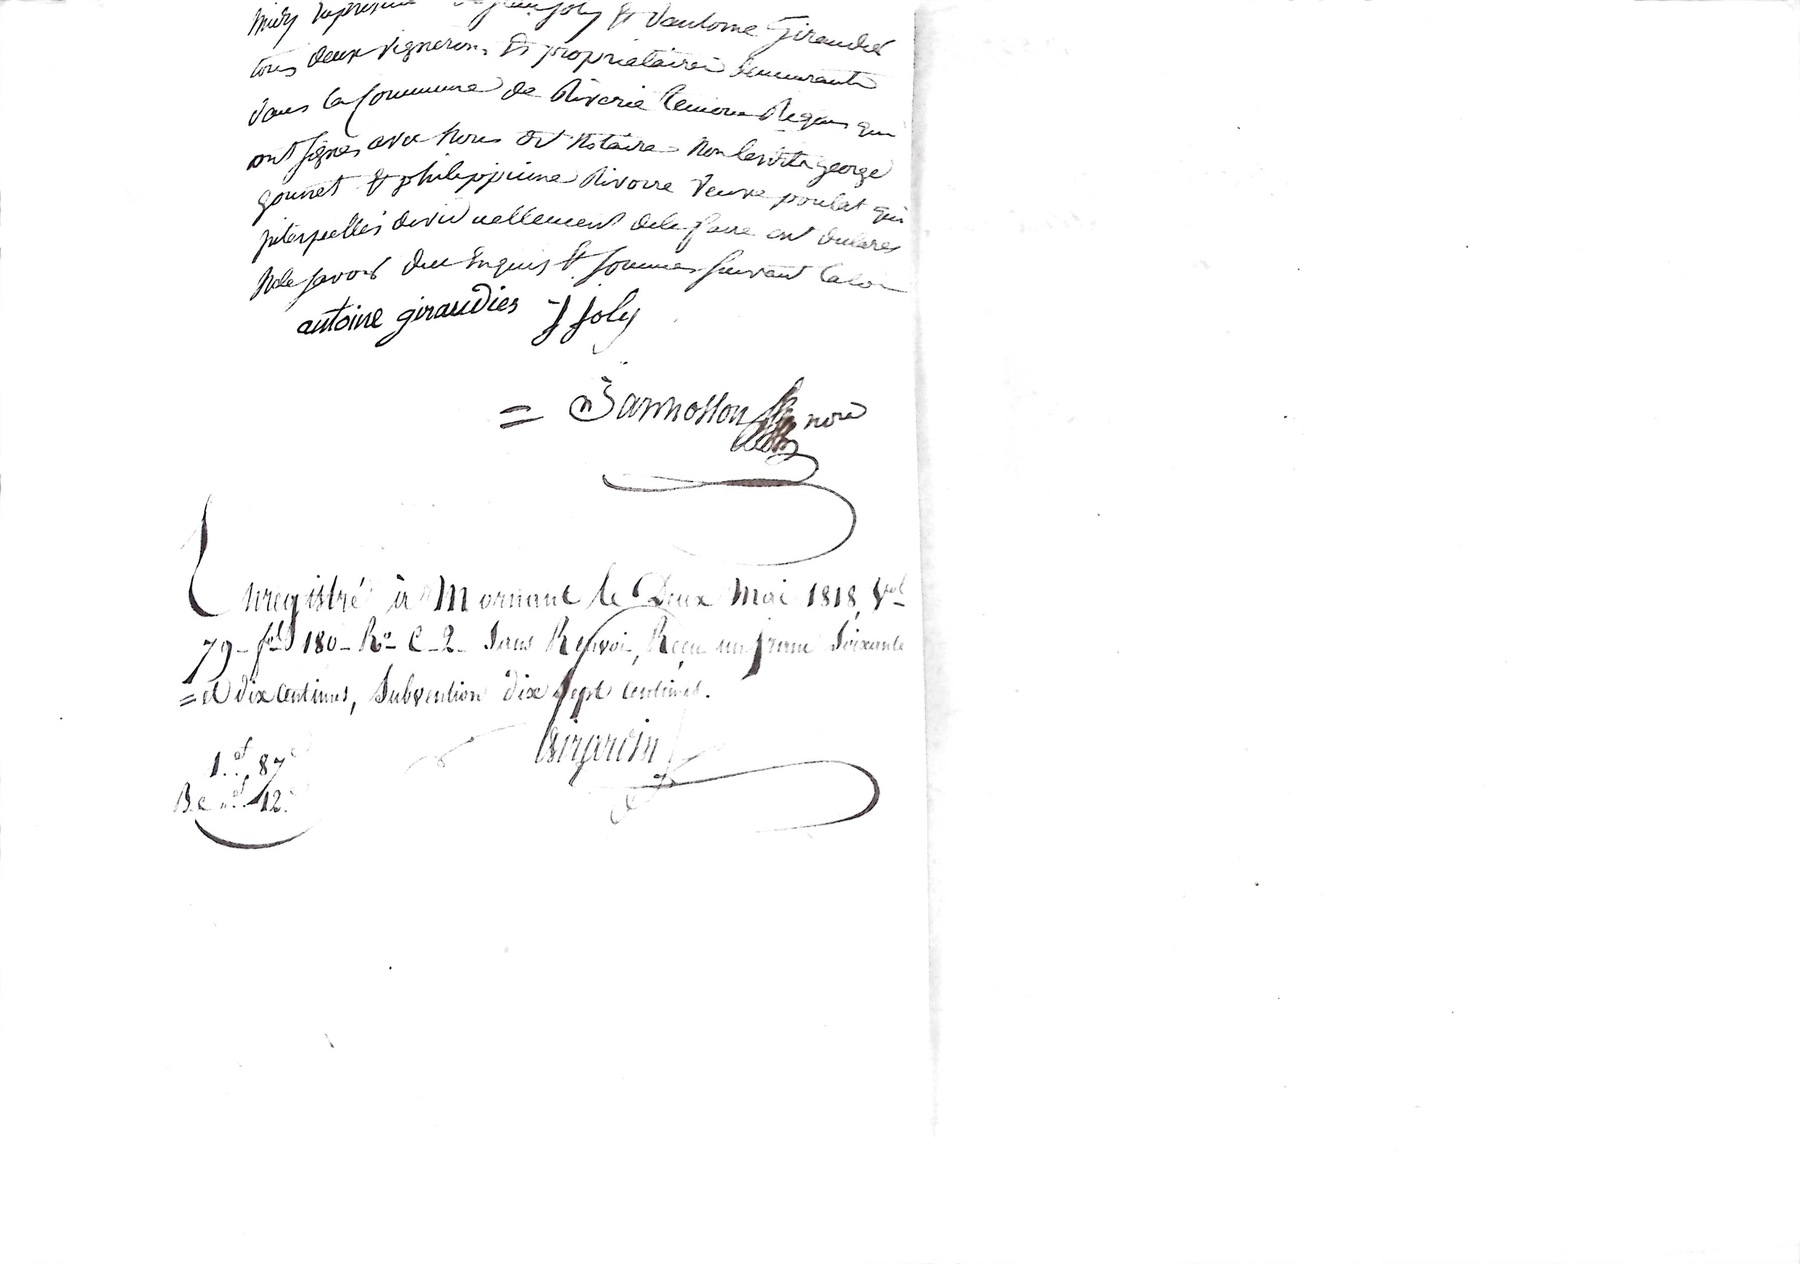 midy en présence de jean joly & d'antoine Giraudié
tous deux vignerons & propriétaires demeurants
dans la Commune de Riverie temoins Requis qui
ont signés avec Nous dt Notaire Non les dits george
gounet & philippinne Rivoire veuve poulat qui
interpellés dividuellement de le faire ont declarés
Ne le savoir due Enquis & sommés suivant la loi
antoine giraudies J Joly
= Bannosson nore
Enregistré à Mornant le Deux Mai 1818, Vol.
79 - fol. 180 - Ro C - 2 - Sans Renvoi, Reçu un franc Soixante
= et dix centimes, Subvention dix sept centimes.
1.f 87c
12.